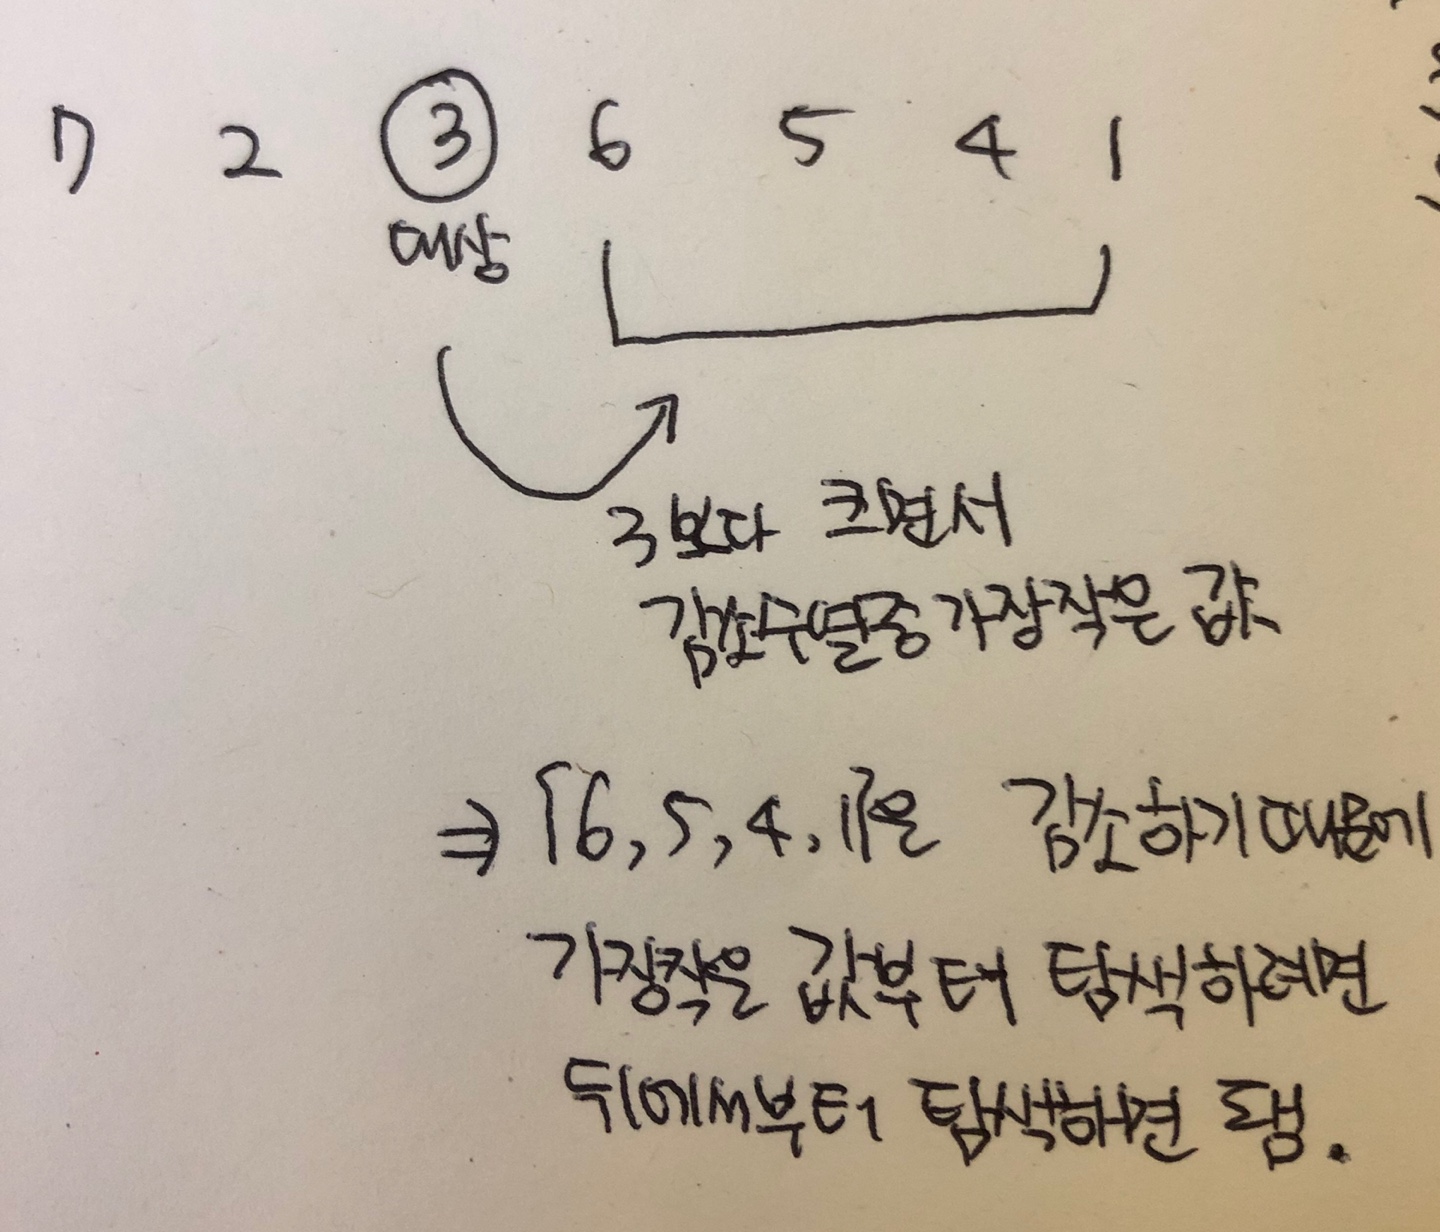 7 2 3 6 5 4 1
대상
3보다 크면서
감소수열중 가장작은 값
⇒ {6, 5, 4, 1}은 감소하기 때문에
가장작은 값부터 탐색하려면
뒤에서부터 탐색하면 됌.